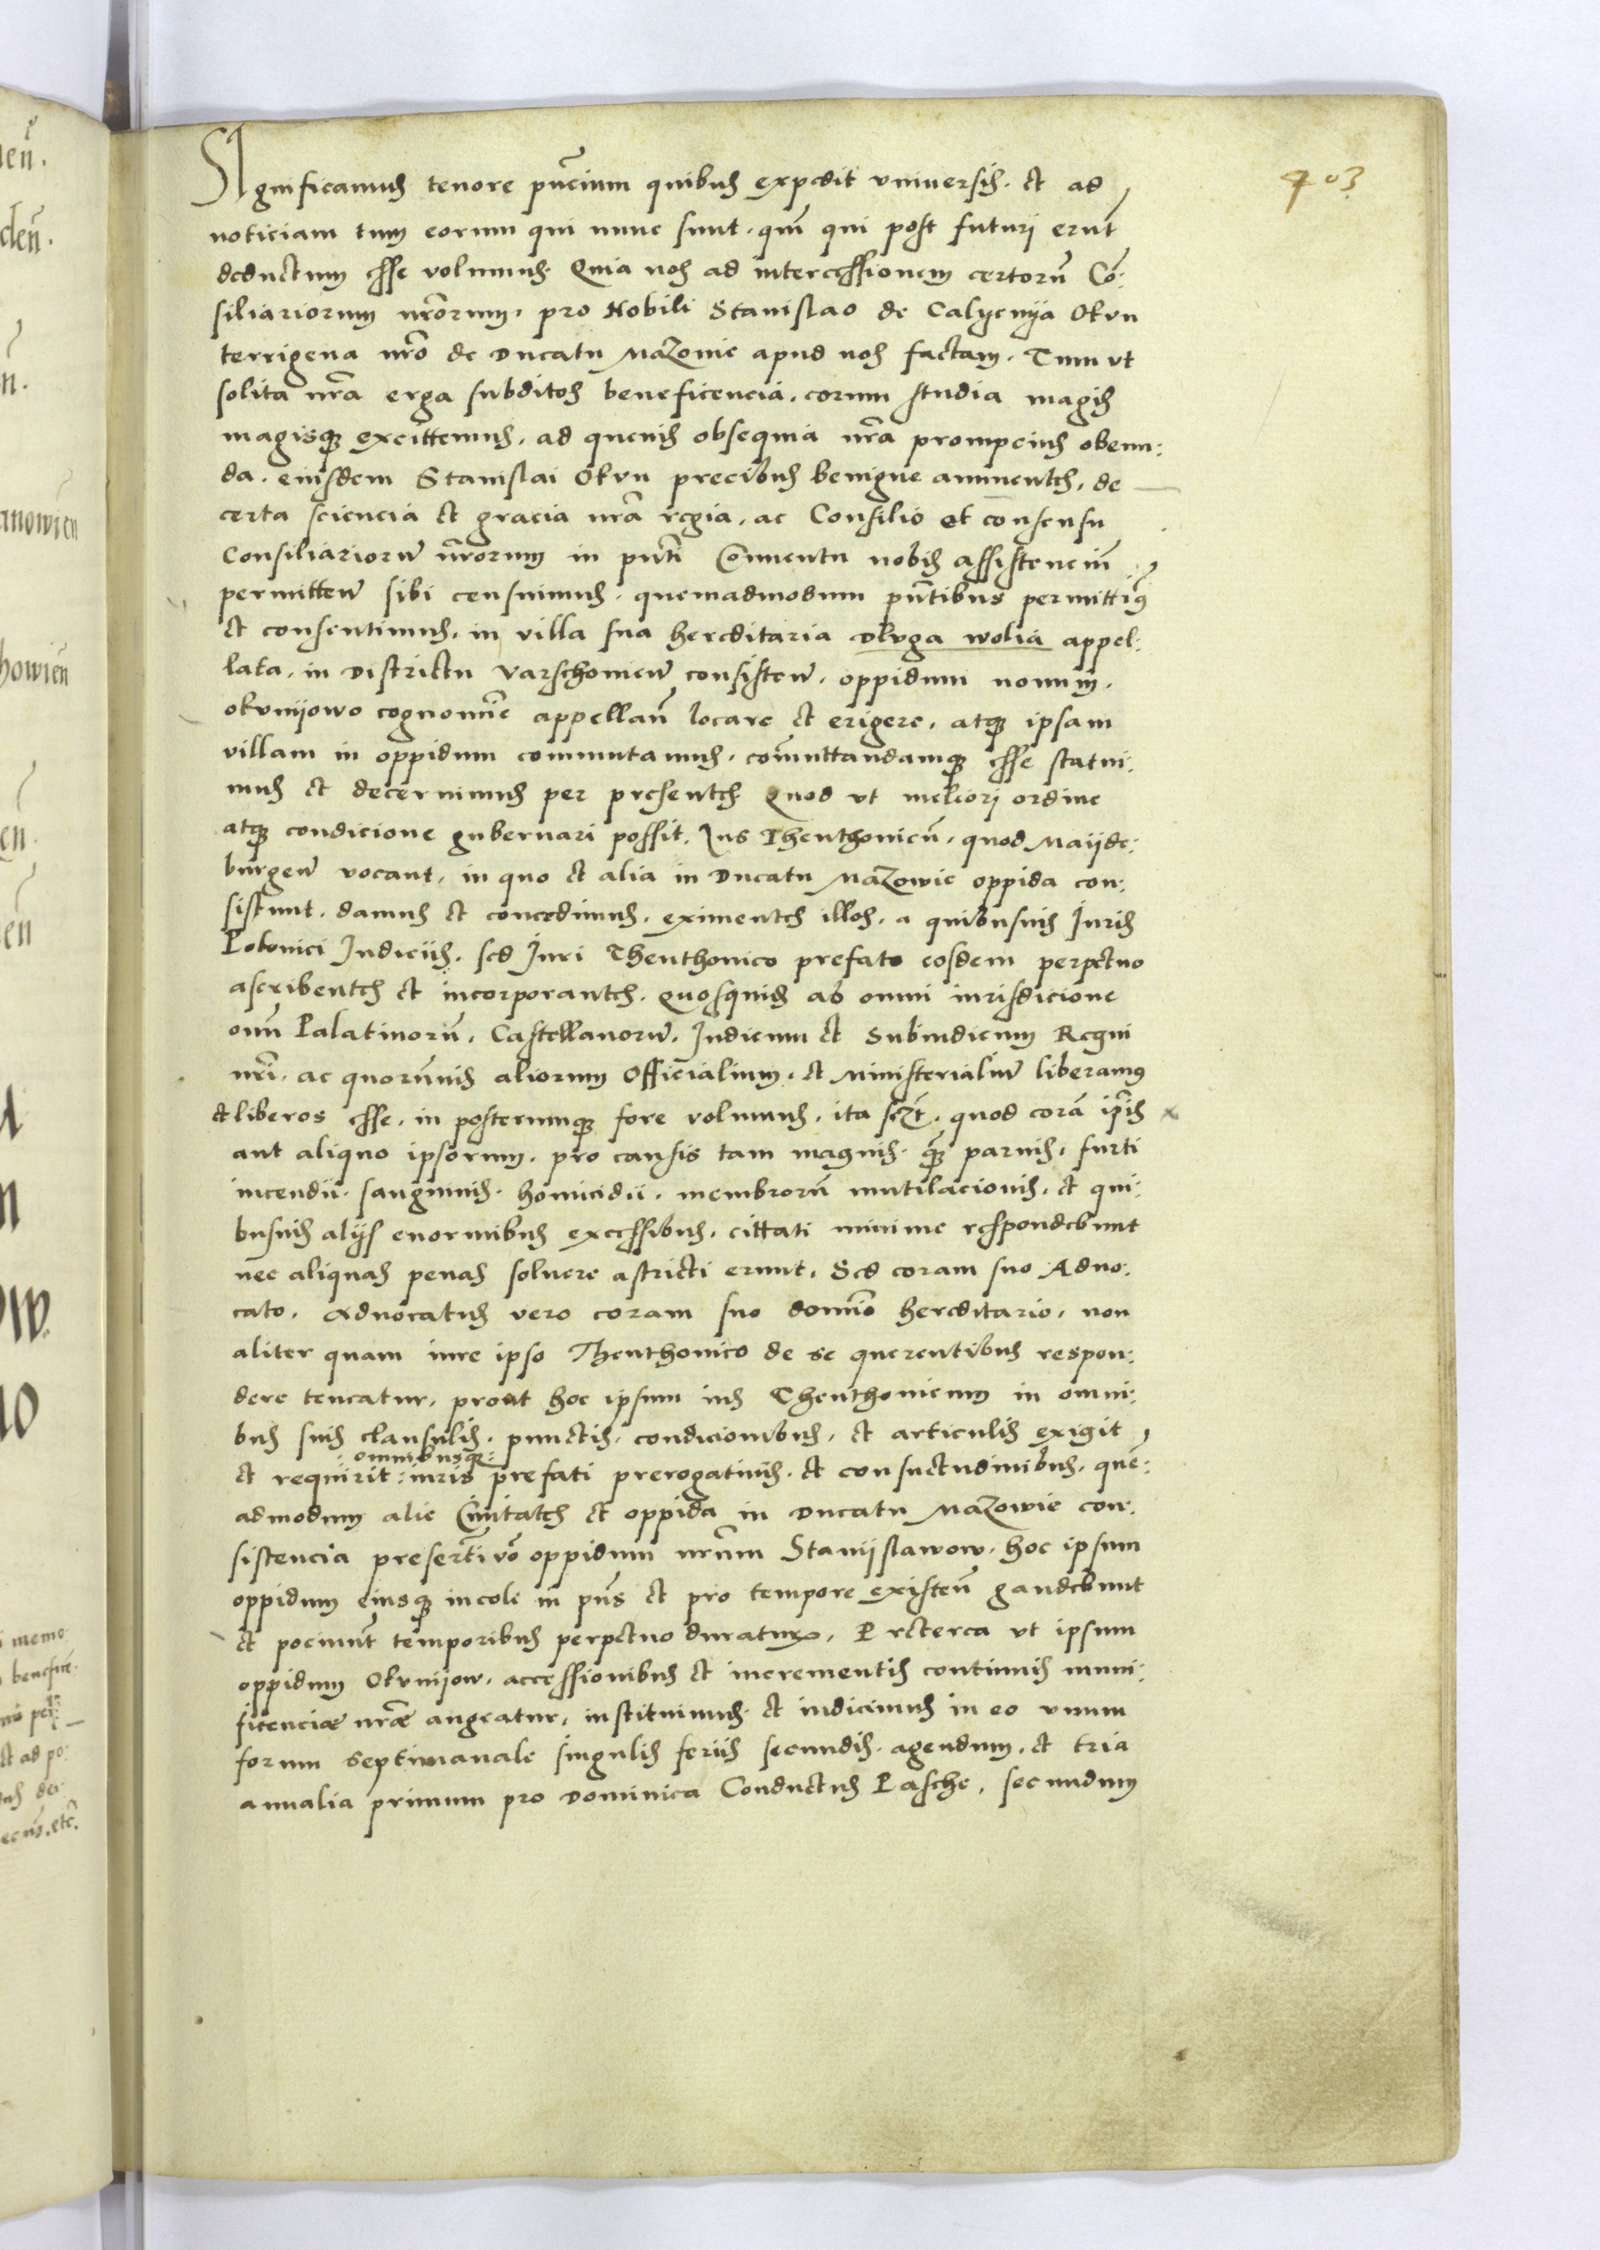 403
SIgnificamus tenore pñcium quibus expedit vniuersis. et ad
noticiam tum eorum qui nunc sunt. qm̃ qui post futuri erũt
deductum esse volumus. Quia nos ad intercessionem certorũ Cõ:
siliariorum nrõrum, pro Nobili Stanislao de Okvn
terrigena nrõ de Ducatu Mazouie apud nos factam. Tum vt
solita nrã erga subditos beneficencia, eorum studia magis
magisq; excittemus, ad queuis obsequia nrã prompcius obeun:
da. eiusdem Stanislai Okvn precibus benigne annuentes, de
certa sciencia et gracia nrã regia, ac Consilio et consensu
Consiliariorũ nrõrum in pñti Conuentu nobis assistenciũ
permittenδ sibi censuimus. quemadmodum pñtibus permittim9
et consentimus, in villa sua hereditaria Dlvga wolia appel:
lata, in Districtu Varschouieñ consisteñ. oppidum nouum,
okvnijowo cognomĩe appellañ locare et erigere, atq; ipsam
villam in oppidum commutamus, com̃uttandamq; esse statui:
mus et decernimus per presentes Quod vt meliori ordine
atq; condicione gubernari possit, Ius Thenthonicũ, quod Maijde:
burgeñ vocant, in quo et alia in Ducatu Mazowie oppida con:
sistunt. damus et concedimus, eximentes illos, a quibusuis Iuris
Polonici Iudiciis, sed Iuri Thenthonico prefato eosdem perpetuo
ascribentes et incorporantes. quosquidẽ ab omni iurisdicione
om̃ Palatinorũ, Castellanorũ, Iudicum et Subiudicum Regni
nrĩ, ac quorũuis aliorum Officialium, et Ministerialiũ liberamus
et liberos esse, in posterumq; fore volumus, ita sczt̃. quod corã ip̃is
aut aliquo ipsorum, pro causis tam magnis. q̃; paruis, furti
incendii. sanguinis. homicidii. membrorũ mutilacionis, et qui:
busuis alijs enormibus excessibus, cittati minime respondebunt
nec aliquas penas soluere astricti erunt, Sed coram suo Aduo:
cato, Aduocatus vero coram suo domĩo hereditario, non
aliter quam iure ipso Thenthonico de se querentibus respon:
dere teneatur, prout hoc ipsum ius Thenthonicum in omni:
bus suis clausulis, punctis, condicionibus, et articulis exigit
: omnibusq; :
et requirit : iuris prefati prerogatiuis, et consuetudinibus, quẽ:
admodum alie Ciuitates et oppida in Ducatu Mazowie con:
sistencia presertĩ võ oppidum nrũm Stanijslawow. hoc ipsum
oppidum eiusq; incole in pñs et pro tempore existeñ gaudebunt
et pociunt̃ temporibus perpetuo duraturo. Preterea vt ipsum
oppidum Okvnijow, accessionibus et incrementis continuis muni:
ficenciæ nræ̃ augeatur, instituimus et indicimus in eo vnum
forum septimanale singulis feriis secundis. agendum, et tria
annalia primum pro Dominica Conductus Pasche, secundum